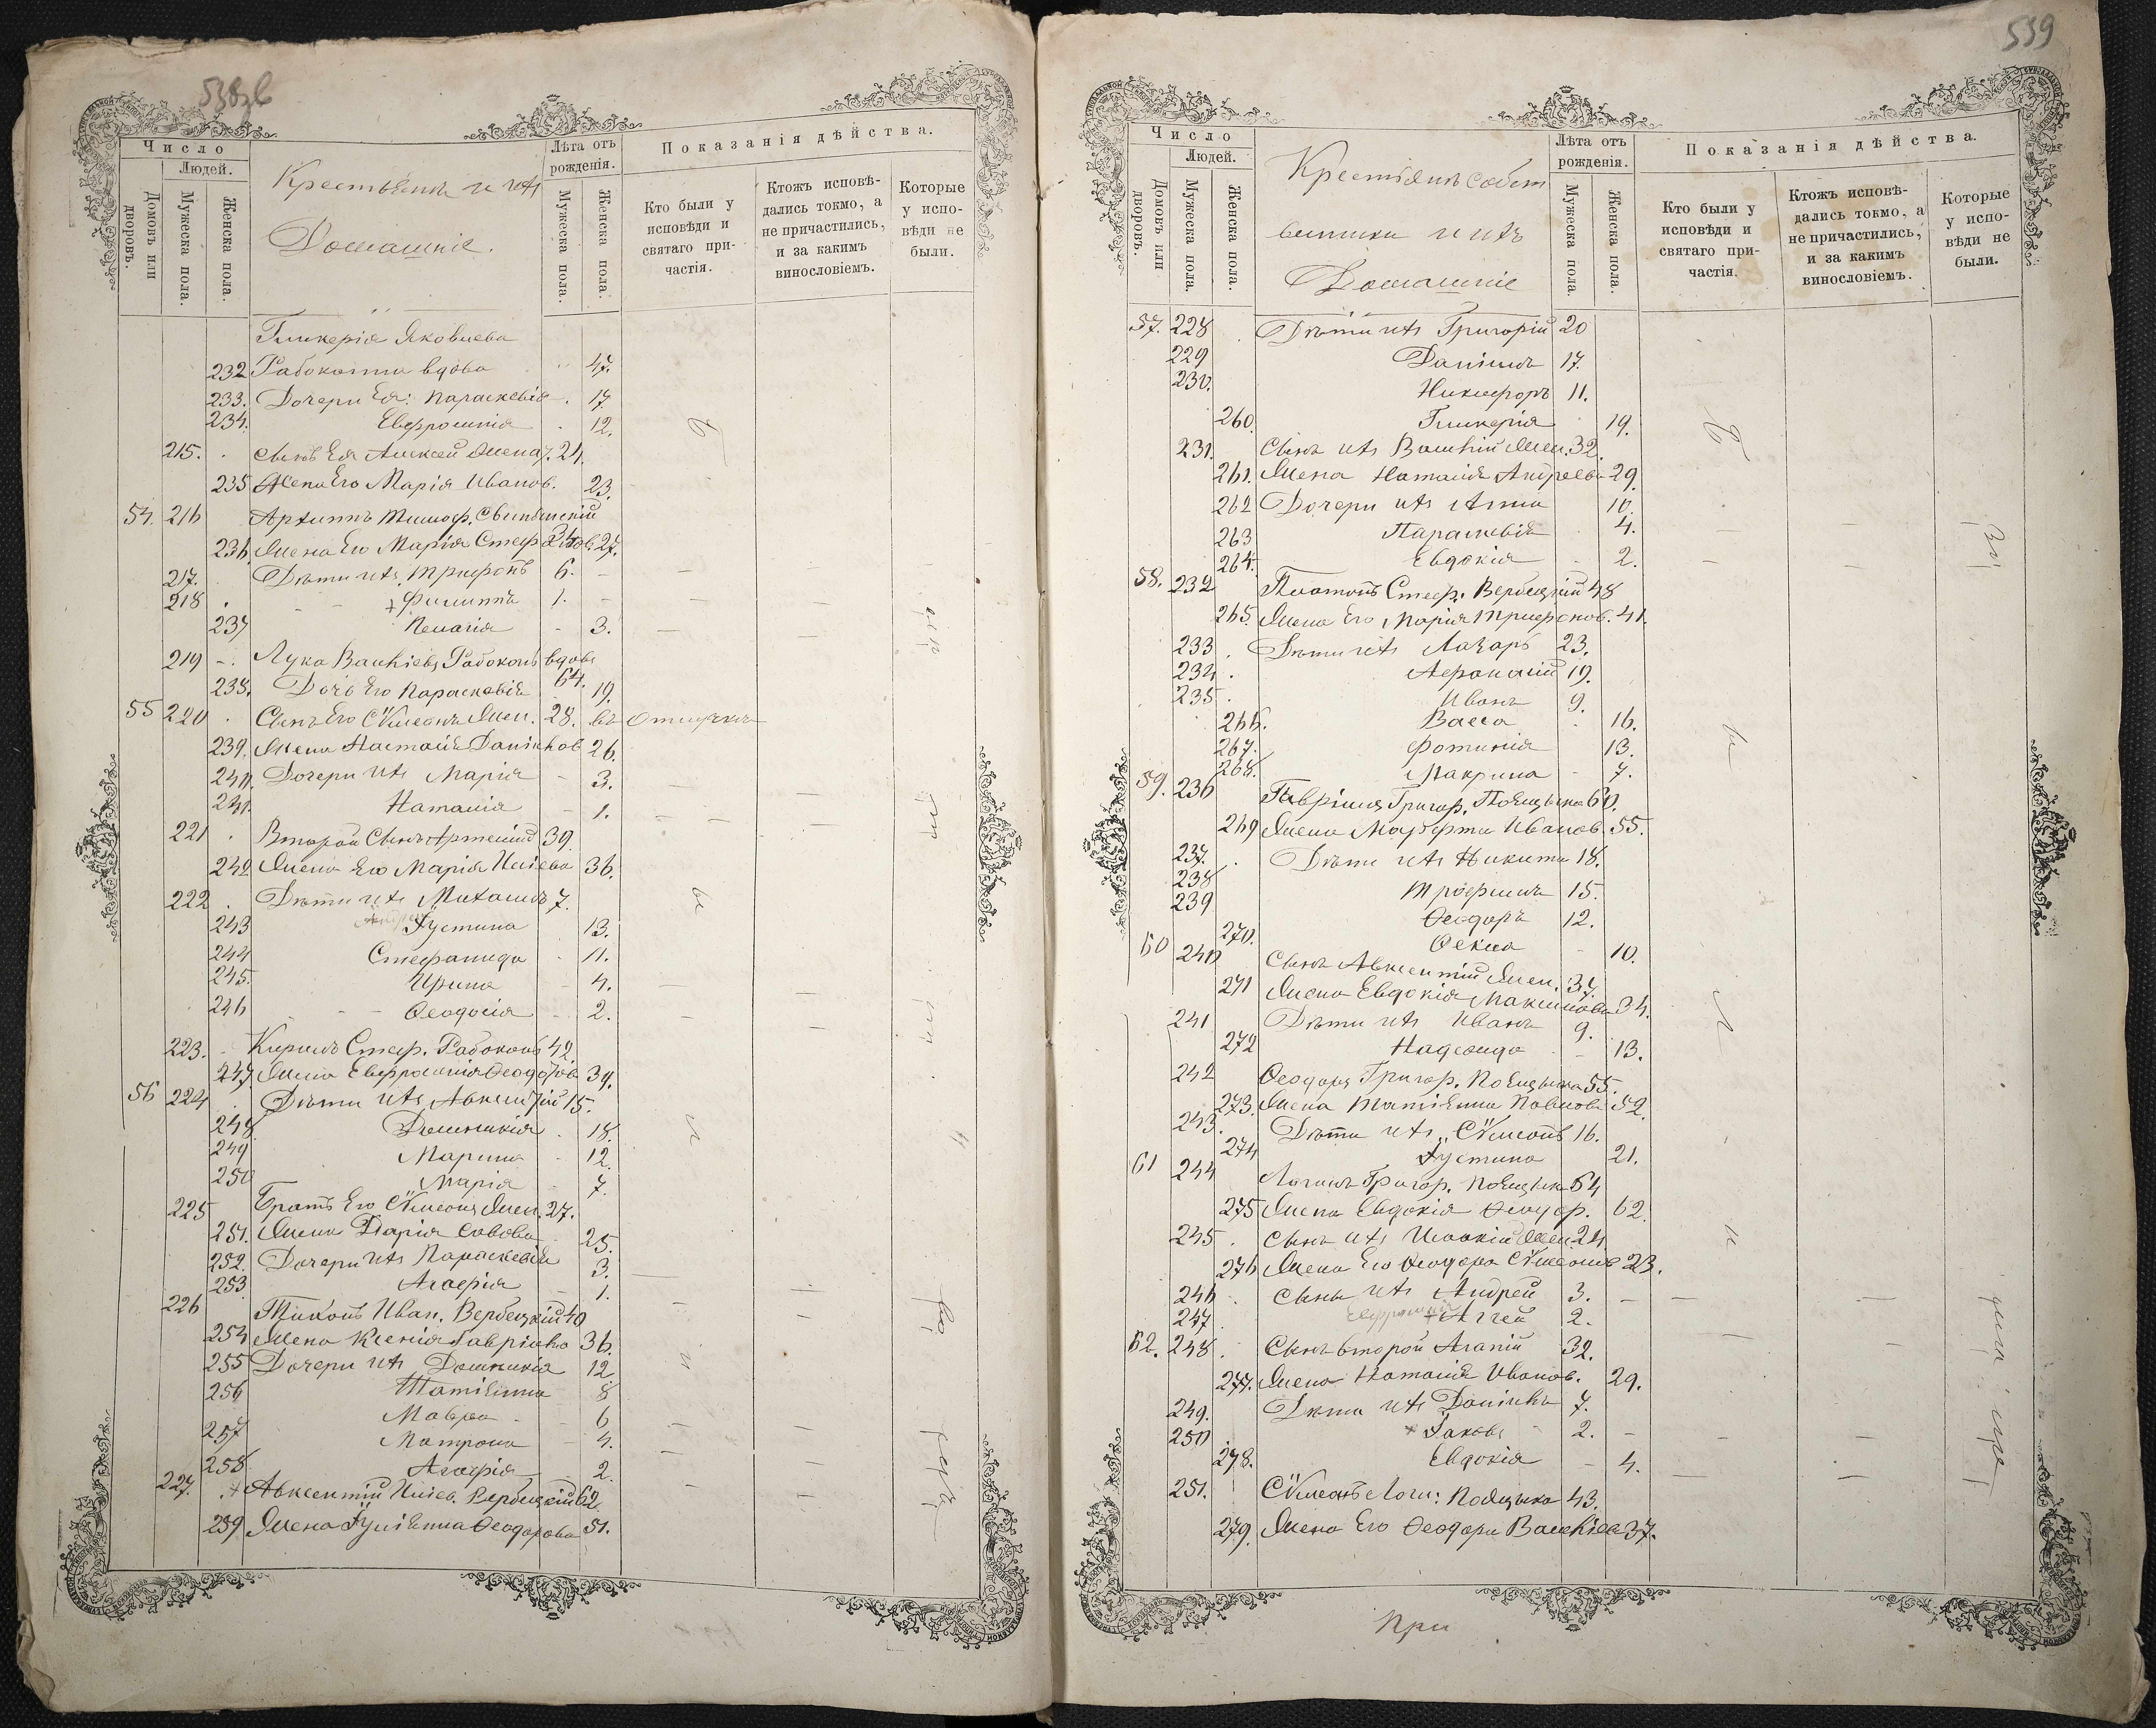 538зв
Число
Людей.
Домовъ или дворовъ.
Мужеска пола.
Женска пола.
Крестьянъ и ихъ
Домашніе.
Лѣта отъ рожденія.
Мужеска пола.
Женска пола.
Показанія дѣйства.
Кто были у исповѣди и святаго причастія.
Ктожъ исповѣдались токмо, а не причастились, и за какимъ винословіемъ.
Которые у исповѣди не были.
Гликерія Яковлева
232 Рабоконя вдова 47.
233. Дочери Ея: Параскевія 17
234. Евфросинія 12.
215. Сынъ Ея Алексей Жена. 24.
235 Жена Его Марія Иванов. 23.
54. 216 Архиппъ Тимоф.
236 Жена Его Марія Стеф 27.
217. Дѣти ихъ Трифонъ 6.
218 Филиппъ 1.
237 Пелагія 3.
219 Лука Вас Рабоконь вдовъ 64.
238. Дочь Его Параскевія 19.
55 220 Сынъ Его Сѵмеонъ Жен. 28. въ отлучкѣ
239. Жена Наталія Даніилов 26.
240. Дочери ихъ Марія 3.
241. Наталія 1.
221 Второй Сынъ Артемій 39.
242 Жена Его Марія Иліева 36.
222 Дѣти ихъ Михаилъ 7.
243 Іустина 13.
244 Стефанида 11.
245. Ирина 4.
246 Ѳеодосія 2.
223. Кирилъ Стеф. Рабоконь 42
247 Жена Евфросинія Ѳеодотов 39.
56 224 Дѣти ихъ Авксентій 15.
248 Домникія 18.
249 Марина 12.
250 Марія 7.
225 Братъ Его Сѵмеонъ Жен. 27.
251. Жена Дарія Савова 25.
252. Дочери ихъ Параскевія 3.
253 Агафія 1.
226 Тихонъ Иван. Вербецкій 40
254 Жена Ксенія Гавріило 36.
255 Дочери ихъ Домникія 12
256 Татіанна 8
Мавра 6
257 Матрона 4.
258 Агафія 2.
227. Авксентій Иліев. Вербецкій 62
259 Жена Іуліанна Ѳеодорова 51.
539
Число
Людей.
Домовъ или дворовъ.
Мужеска пола.
Женска пола.
Крестьянъ Собст
венники и ихъ
Домашніе
Лѣта отъ рожденія.
Мужеска пола.
Женска пола.
Показанія дѣйства.
Кто были у исповѣди и святаго причастія.
Ктожъ исповѣдались токмо, а не причастились, и за какимъ винословіемъ.
Которые у исповѣди не были.
57. 228 Дѣти ихъ Григорій 20
229 Даніилъ 17.
230. Никифоръ 11.
260. Гликерія 19.
231. Сынъ ихъ Василій Жен. 32.
261. Жена Наталія Андреева 29.
262 Дочери ихъ Анна 10.
263 Параскевія 4.
264. Евдокія 2.
58. 232 Платонъ Стеф. Вербецкій 48
265. Жена Его Марія Трифонов. 41.
233 Дѣти ихъ Лазарь 23.
234 Афанасій 19.
235 Иванъ 9.
266. Васса 16.
267. Фотинія 13.
268. Макрина 7.
59. 236 Гавріилъ Григор. 60.
269 Жена Марфа Иванов. 55.
237. Дѣти ихъ Никита 18.
238 Трофимъ 15.
239 Ѳеодоръ 12.
270. Ѳекла 10.
60 240 Сынъ Авксентій Жен. 37.
271 Жена Евдокія Максимова 34.
241 Дѣти ихъ Иванъ 9.
272 Надежда 13.
242 Ѳеодоръ Григор. 55.
273. Жена Татіанна Павлова 52.
243. Дѣти ихъ Сѵмеонъ 16.
274 Іустина 21.
61 244 Логинъ Григор. 64
275 Жена Евдокія Ѳеодор. 62.
245 Сынъ ихъ Исаакій Жен. 24
276 Жена Его Ѳеодора Сѵмеонов 23.
246 Сыны ихъ Андрей 3.
247 Аггей 2.
62. 248 Сынъ второй Агапій 32.
277. Жена Наталія Иванов. 29.
249. Дѣти ихъ Даніилъ 7.
250 Іаковъ 2.
278. Евдокія 4.
251. Сѵмеонъ Логи: 43.
279. Жена Его Ѳеодора Василіев 37.
при